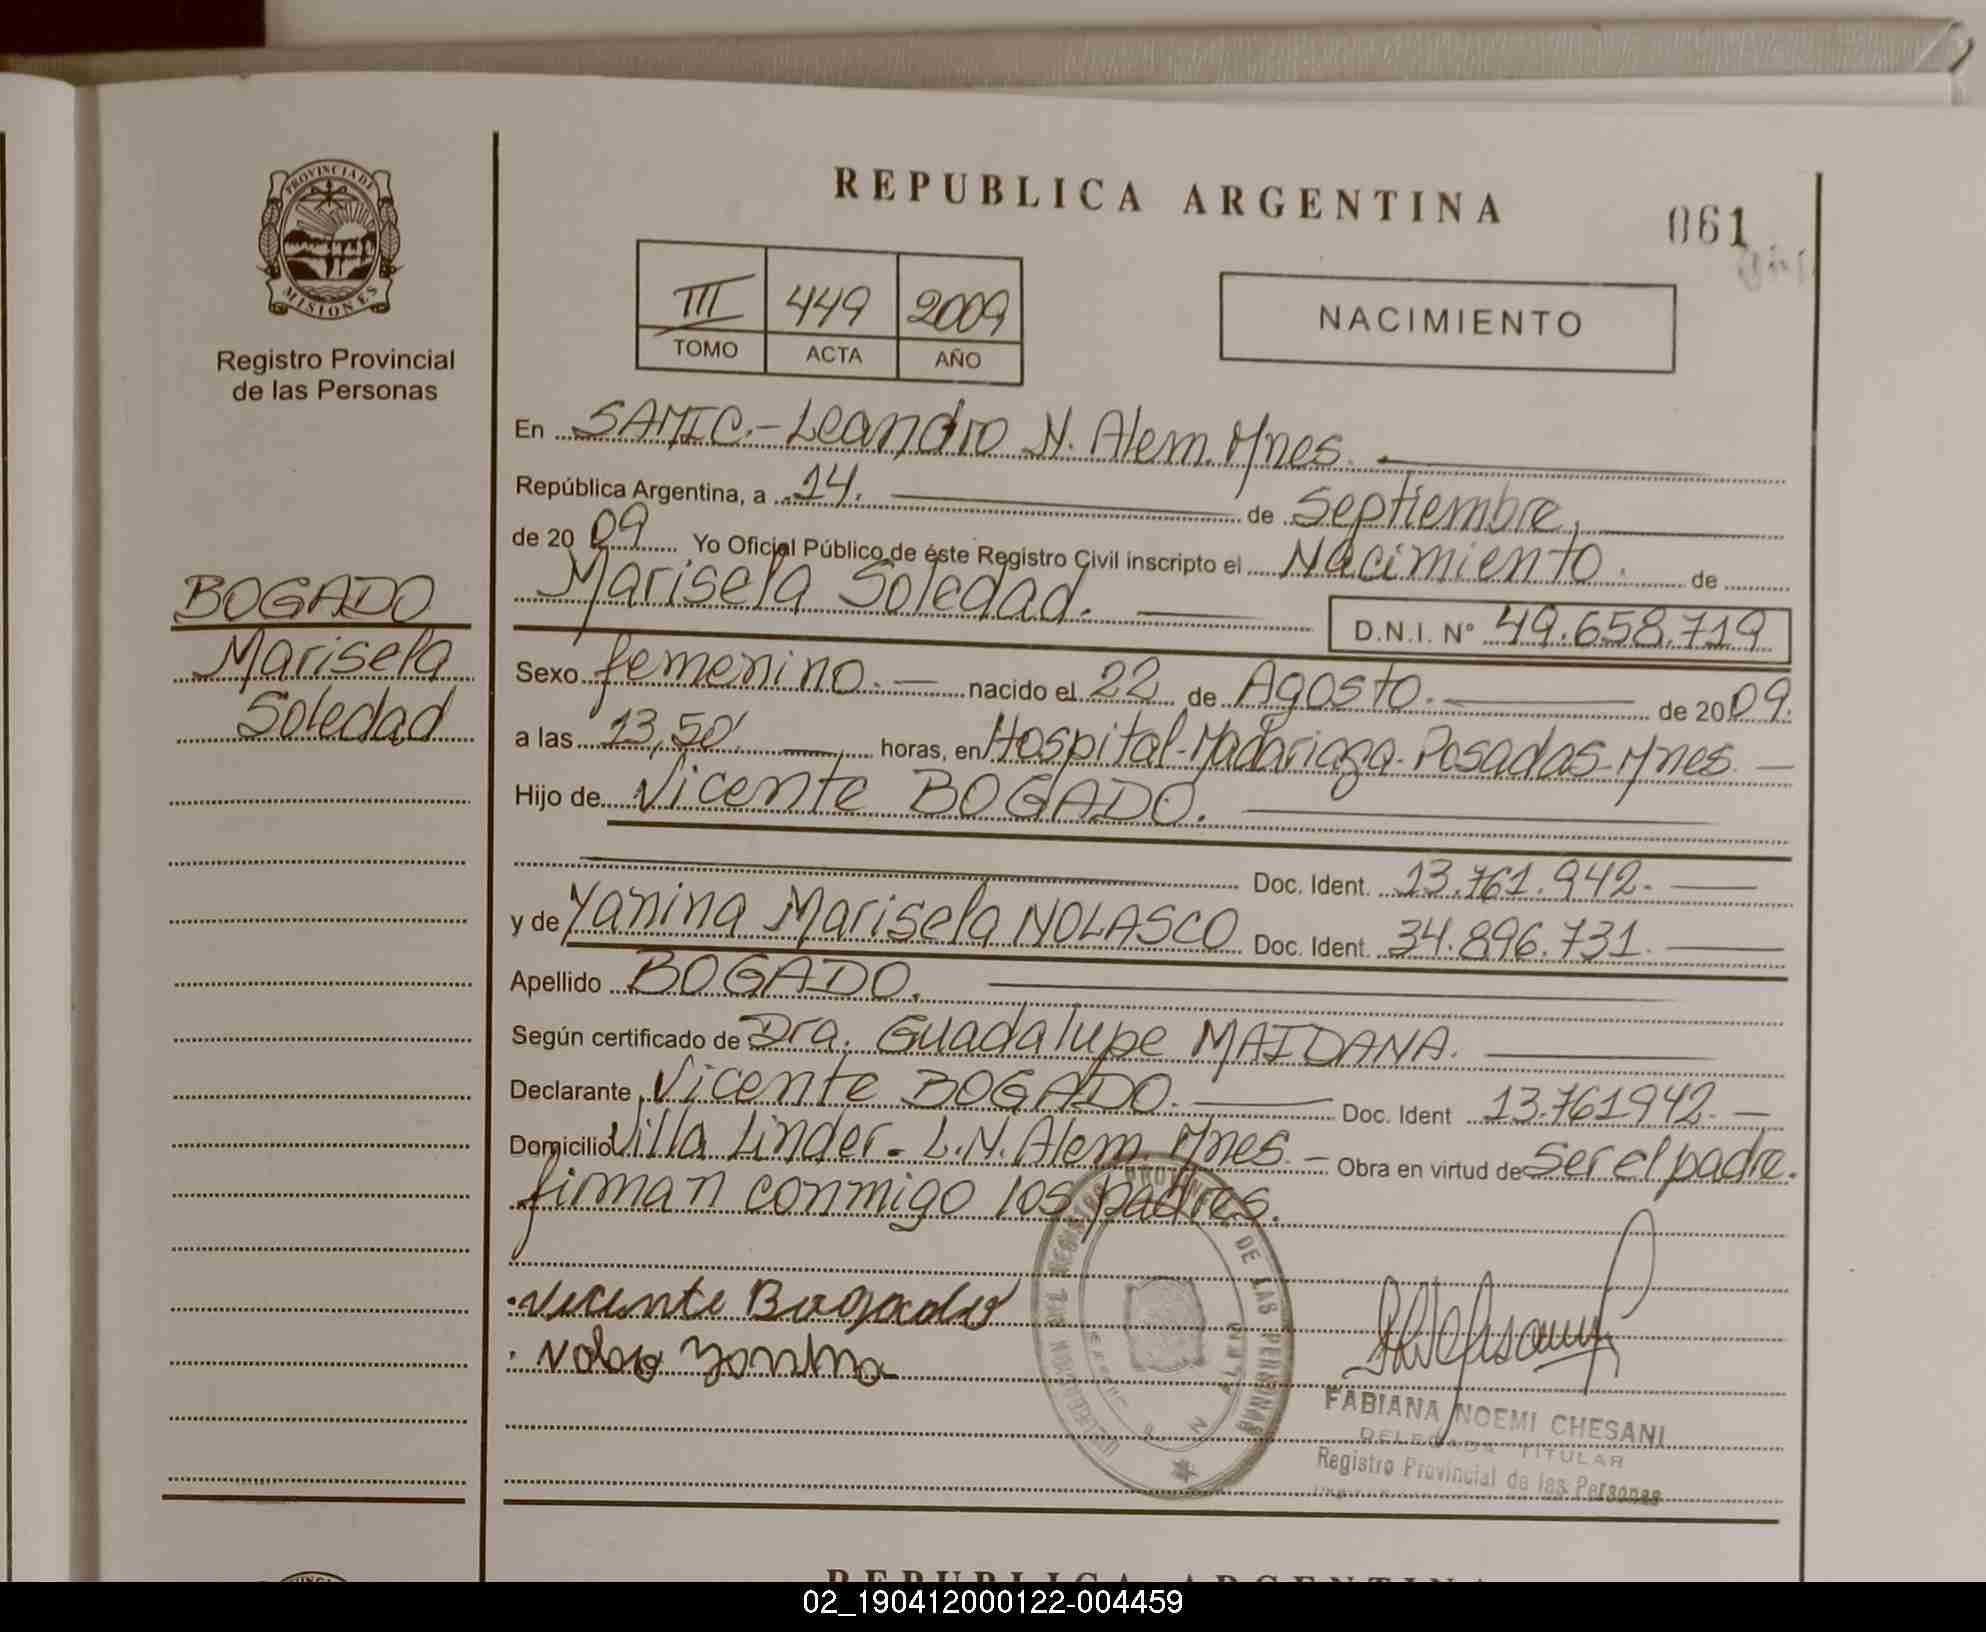 PROVINCIA DE
MISIONES
Registro Provincial
de las Personas
BOGADO
Marisela
Soledad
REPUBLICA ARGENTINA
061
III 449 2009
TOMO ACTA AÑO
NACIMIENTO
En SAMIC.- Leandro N. Alem. Mnes.
República Argentina, a 14. de Septiembre,
de 20 09 Yo Oficial Público de éste Registro Civil inscripto el Nacimiento. de
Marisela Soledad. D.N.I. Nº 49.658.719
Sexo femenino. nacido el 22 de Agosto. de 20 09.
a las 13,50' horas, en Hospital-Madariaga-Posadas-Mnes.
Hijo de Vicente BOGADO.
Doc. Ident. 13.761.942.
y de Yanina Marisela NOLASCO Doc. Ident. 34.896.731.
Apellido BOGADO.
Según certificado de Dra. Guadalupe MAIDANA.
Declarante Vicente BOGADO. Doc. Ident 13.761942.
Domicilio Villa Linder. L.N. Alem. Mnes. Obra en virtud de Ser el padre.
firman conmigo los padres.
Vicente Bogado
Yanina
DE LAS PERSONAS
FABIANA NOEMI CHESANI
DELEGADA TITULAR
Registro Provincial de las Personas
REPUBLICA ARGENTINA
02_190412000122-004459